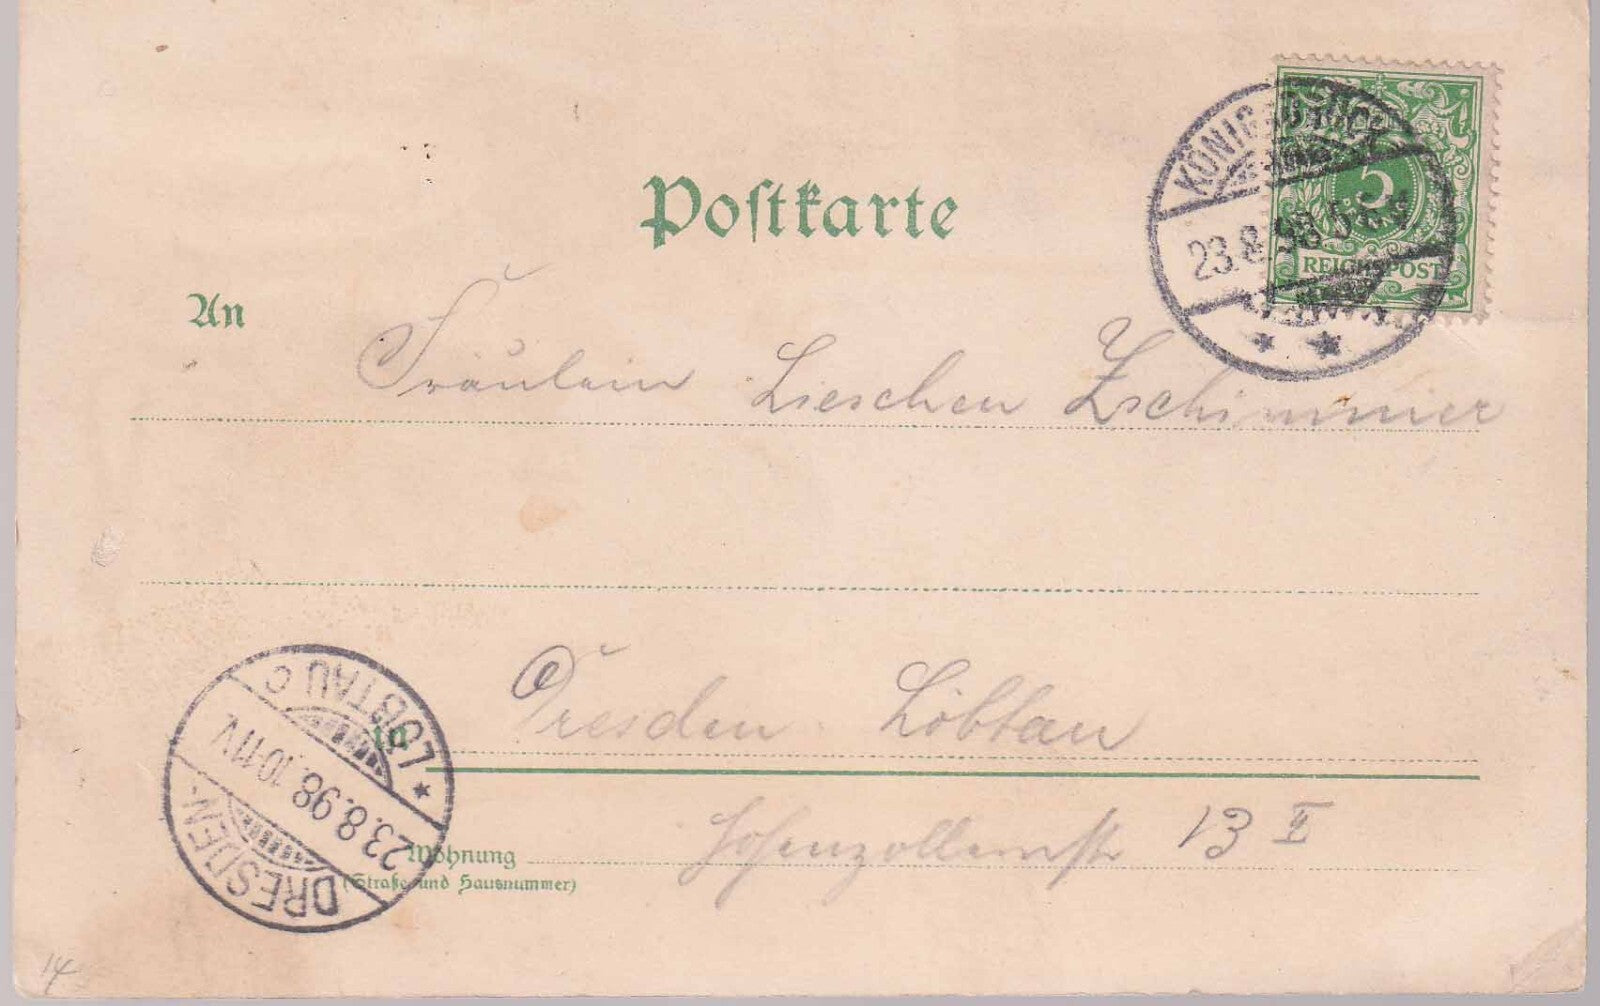 Postkarte
5
REICHSPOST
23.8.98 5
An
Fräulein Lieschen Zschimmer
in
Dresden Löbtau
Wohnung
(Straße und Hausnummer)
Hohenzollernstr 13 II
DRESDEN-
LÖBTAU C
23.8.98.10-11V.
14